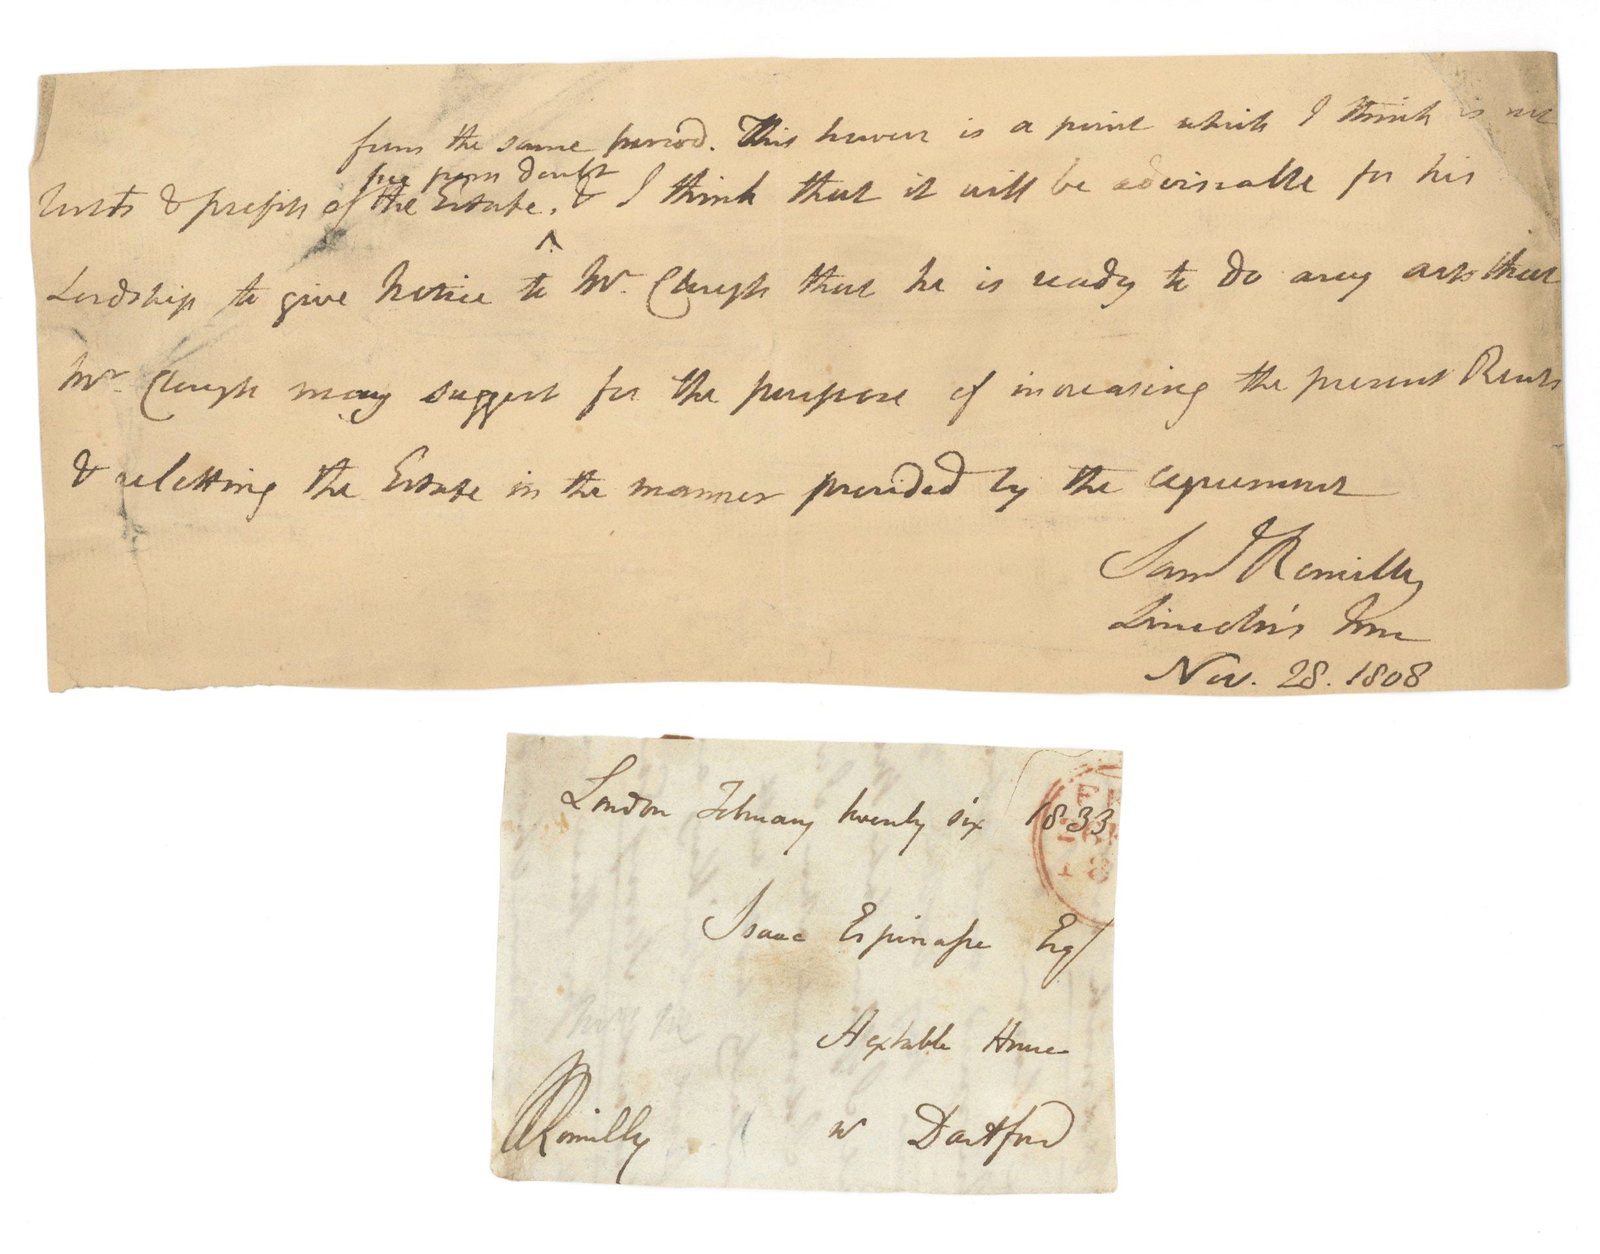 from the same period. This however is a point which I think is not
free from doubt
rents & profits of the Estate. & I think that it will be adviseable for his
Lordship to give Notice to Mr. Clough that he is ready to do any acts that
Mr. Clough may suggest for the purpose of increasing the present Rents
& reletting the Estate in the manner provided by the agreement
Saml Romilly
Lincoln's Inn
Nov. 28. 1808
London February twenty six 1833
Isaac Espinasse Esq
Hextable House
Dartford
Romilly